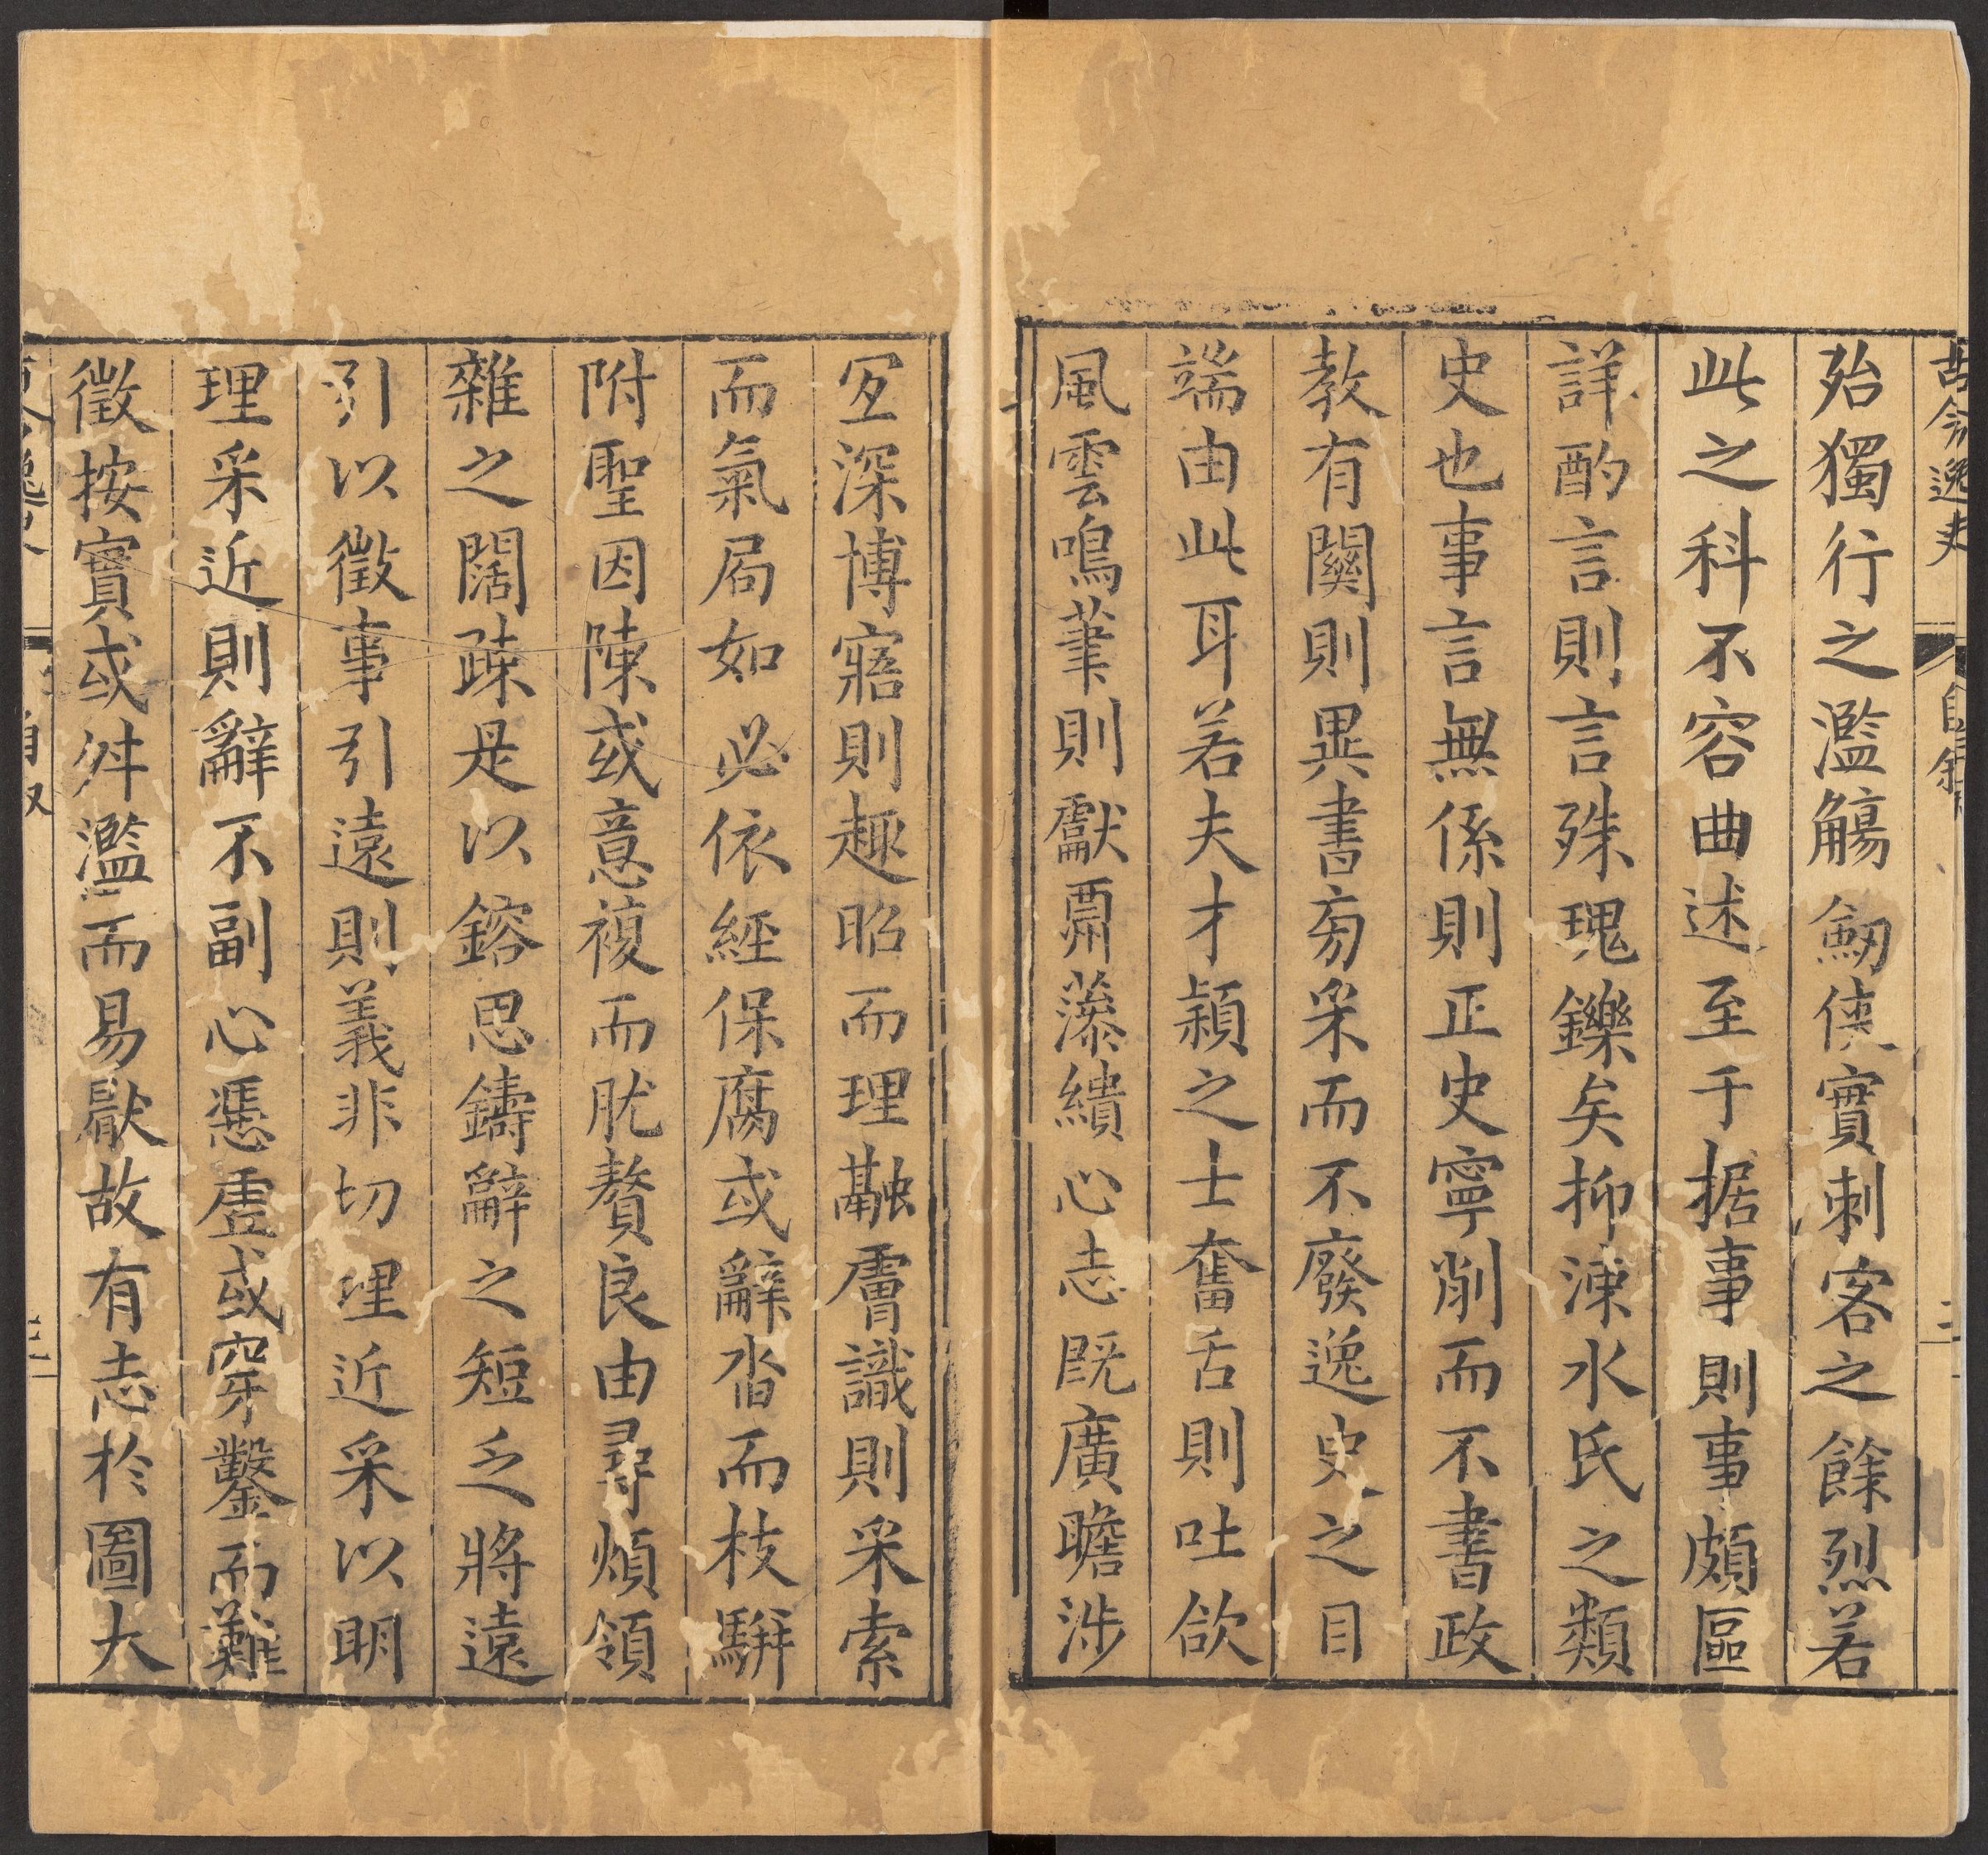 古今逸史 自敘 二
殆獨行之濫觴劒俠實刺客之餘烈若
此之科不容曲述至于据事則事頗區
詳酌言則言殊瑰鑠矣抑涷水氏之類
史也事言無係則正史寧削而不書政
教有關則異書旁采而不廢逸史之目
端由此耳若夫才潁之士奮舌則吐欱
風雲鳴筆則獻𩰬藻繢心志既廣瞻涉
宜深博寤則趣昭而理融膚識則采索
而氣局如必依經保腐或辭沓而枝騈
附聖因陳或意複而肬贅良由尋煩領
雜之闊疎是以鎔思鑄辭之短乏將遠
引以徵事引遠則義非切理近采以明
理采近則辭不副心憑虛或穿鑿而難
徵按實或舛濫而易厭故有志於圖大
自叙